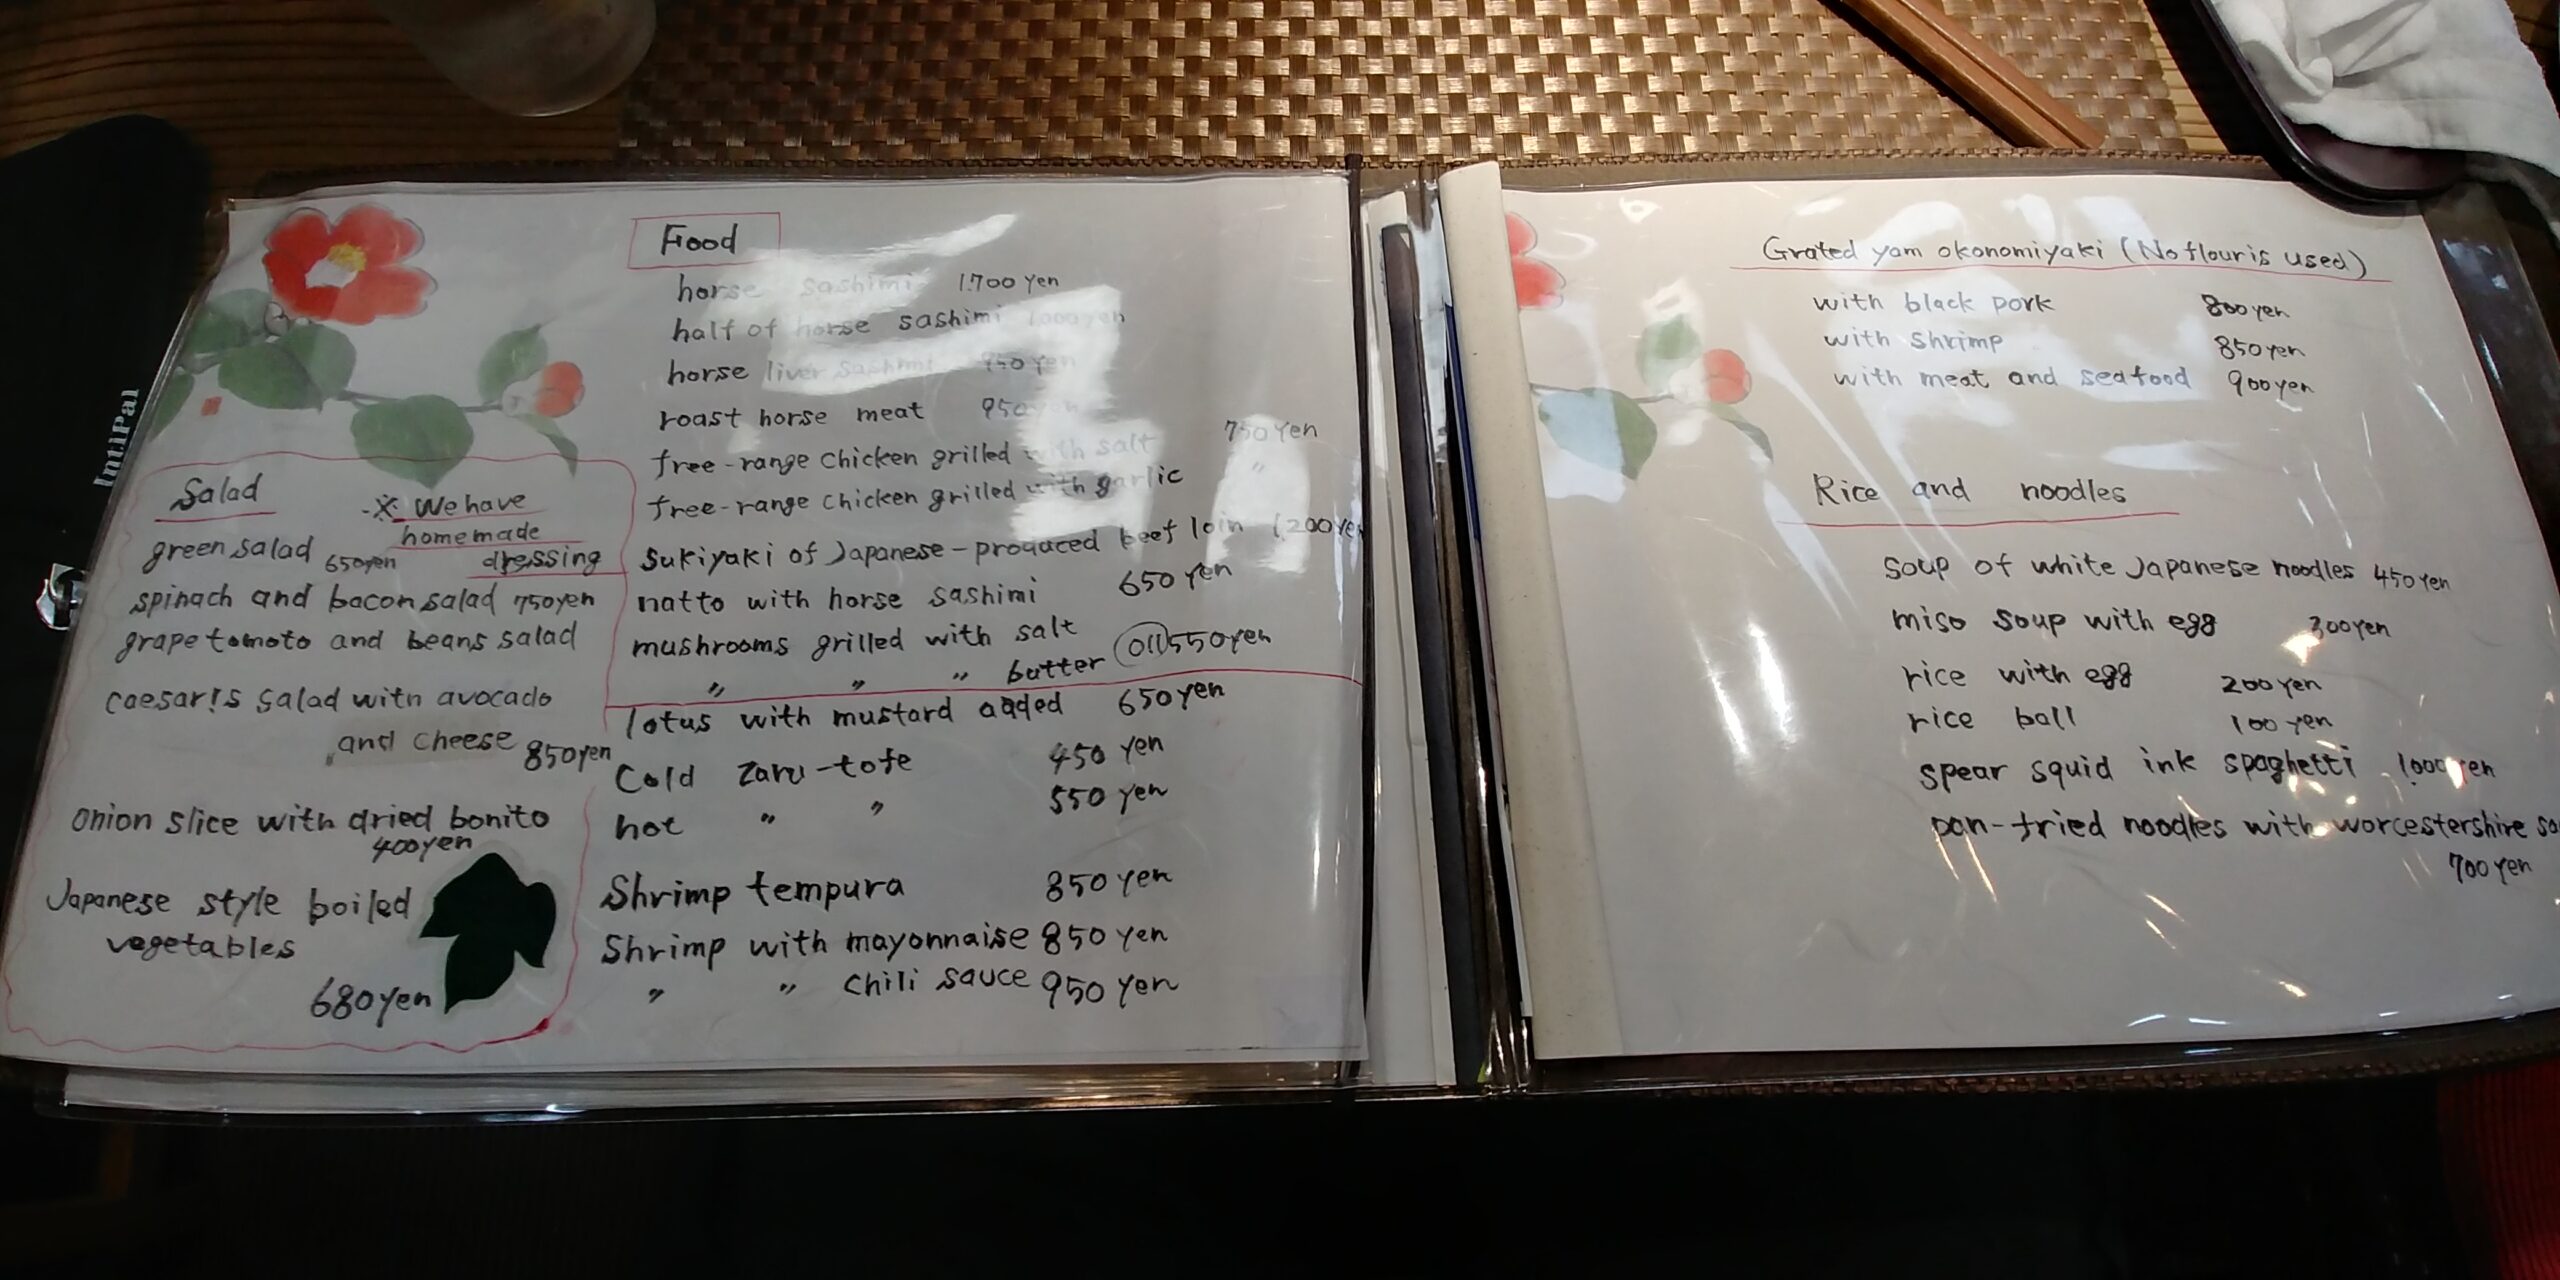 IntiPal
Food
horse sashimi 1.700 yen
half of horse sashimi 1.000 yen
horse liver sashimi 950 yen
roast horse meat 950 yen
free-range chicken grilled with salt 750 yen
free-range chicken grilled with garlic "
sukiyaki of Japanese-produced beef loin 1.200 yen
natto with horse sashimi 650 yen
mushrooms grilled with salt
" " " butter 550 yen
lotus with mustard added 650 yen
Cold zaru-tofe 450 yen
hot " " 550 yen
Shrimp tempura 850 yen
Shrimp with mayonnaise 850 yen
" " chili sauce 950 yen
Salad
※ We have
homemade
dressing
green salad 650yen
spinach and bacon salad 750yen
grape tomoto and beans salad
caesar!s salad with avocado
and cheese 850yen
onion slice with dried bonito
400yen
Japanese style boiled
vegetables
680yen
Grated yam okonomiyaki (No flour is used)
with black pork 800yen
with shrimp 850yen
with meat and seafood 900yen
Rice and noodles
soup of white Japanese noodles 450yen
miso soup with egg 300yen
rice with egg 200yen
rice ball 100 yen
spear squid ink spaghetti 1.000yen
pan-fried noodles with worcestershire
700 yen